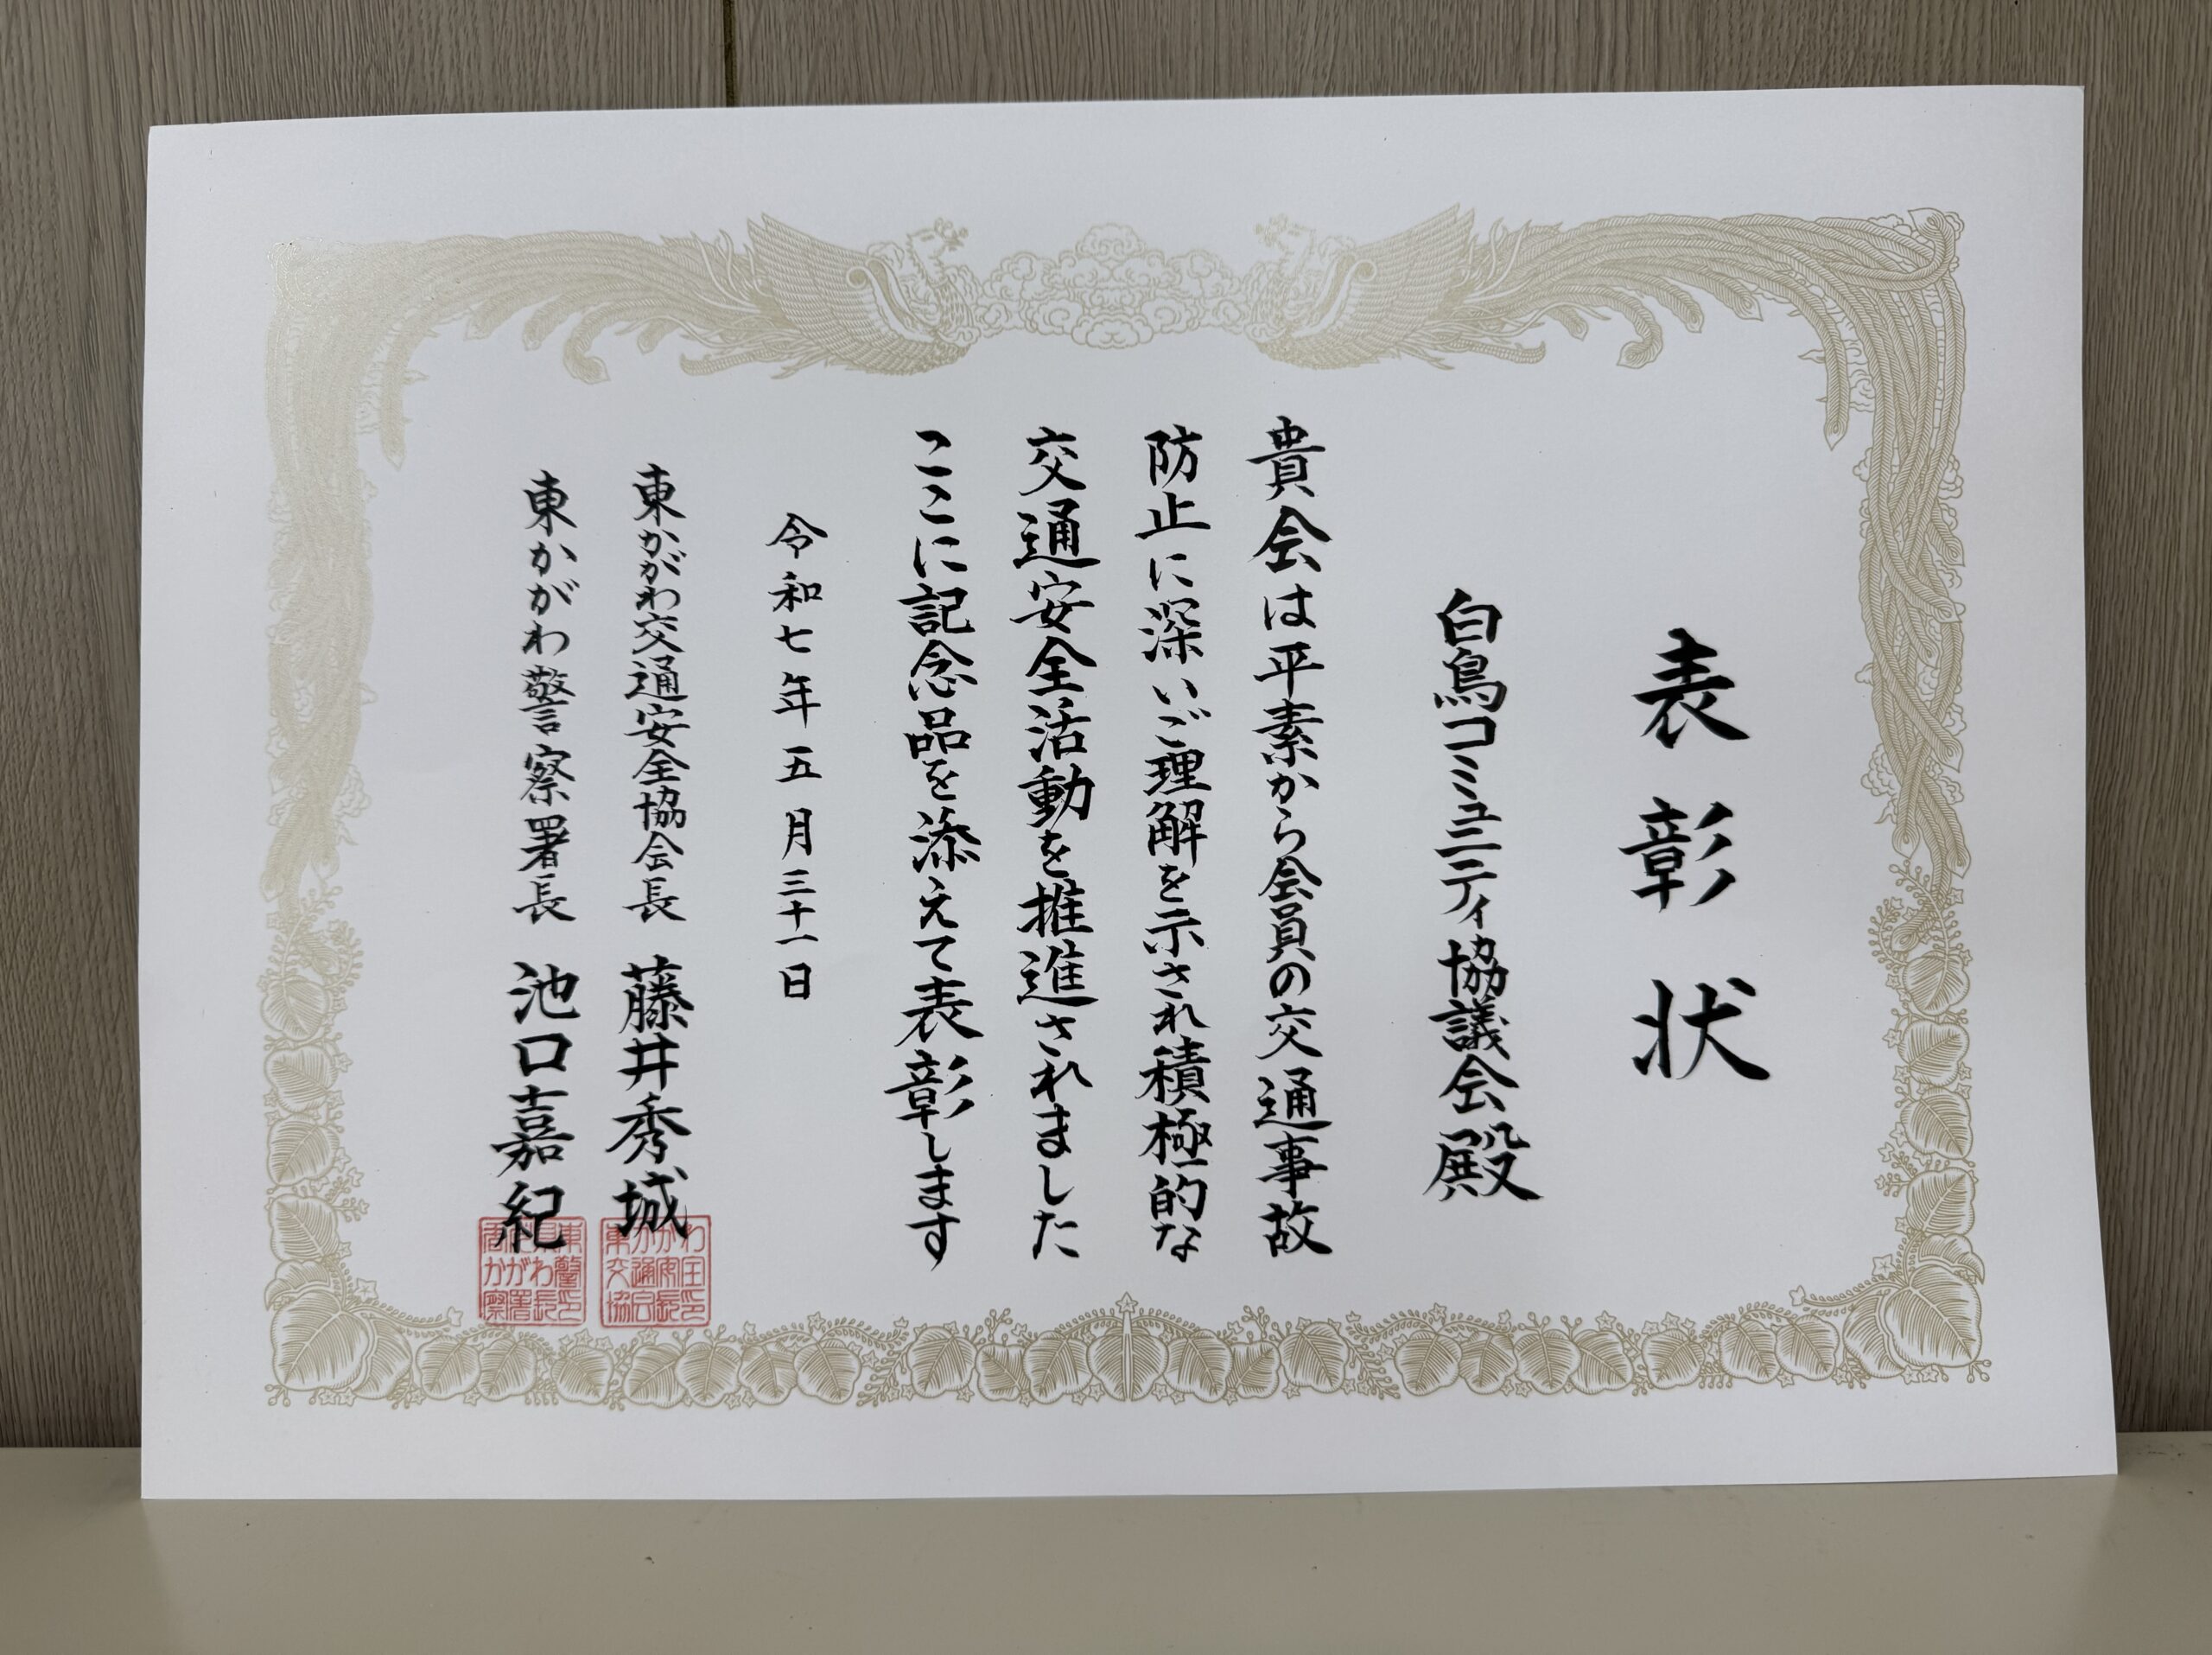 表彰状
白鳥コミュニティ協議会殿
貴会は平素から会員の交通事故
防止に深いご理解を示され積極的な
交通安全活動を推進されました
ここに記念品を添えて表彰します
令和七年五月三十一日
東かがわ交通安全協会長 藤井秀城
東かがわ警察署長 池口嘉紀